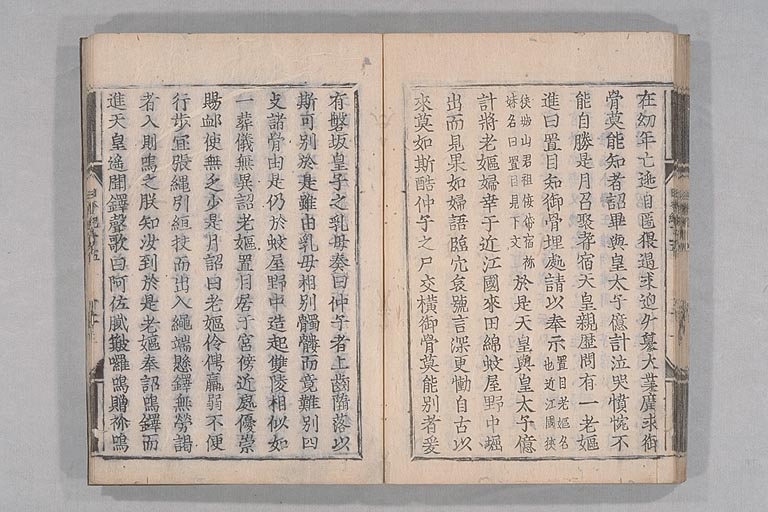 在幼年亡逃自匿猥遇求迎升纂大業廣求御
骨莫能知者詔畢與皇太子億計泣哭憤惋不
能自勝是月召聚耆宿天皇親歷問有一老嫗
進曰置目知御骨埋處請以奉示置目老嫗名也近江國狹
狹城山君祖倭帒宿祢妹名曰置目見下文於是天皇與皇太子億
計將老嫗婦幸于近江國來田綿蚊屋野中堀
出而見果如婦語臨穴哀號言深更慟自古以
來莫如斯酷仲子之尸交橫御骨莫能別者爰
有磐坂皇子之乳母奏曰仲子者上齒墮落以
斯可別於是雖由乳母相別髑髏而竟難別四
支諸骨由是仍於蚊屋野中造起雙陵相似如
一葬儀無異詔老嫗置目居于宮傍近處優崇
賜卹使無乏少是月詔曰老嫗伶俜羸弱不便
行步宜張繩引絙扶而出入繩端懸鐸無勞謁
者入則鳴之朕知汝到於是老嫗奉詔鳴鐸而
進天皇遙聞鐸聲歌曰阿佐膩簸囉鳴贈祢鳴